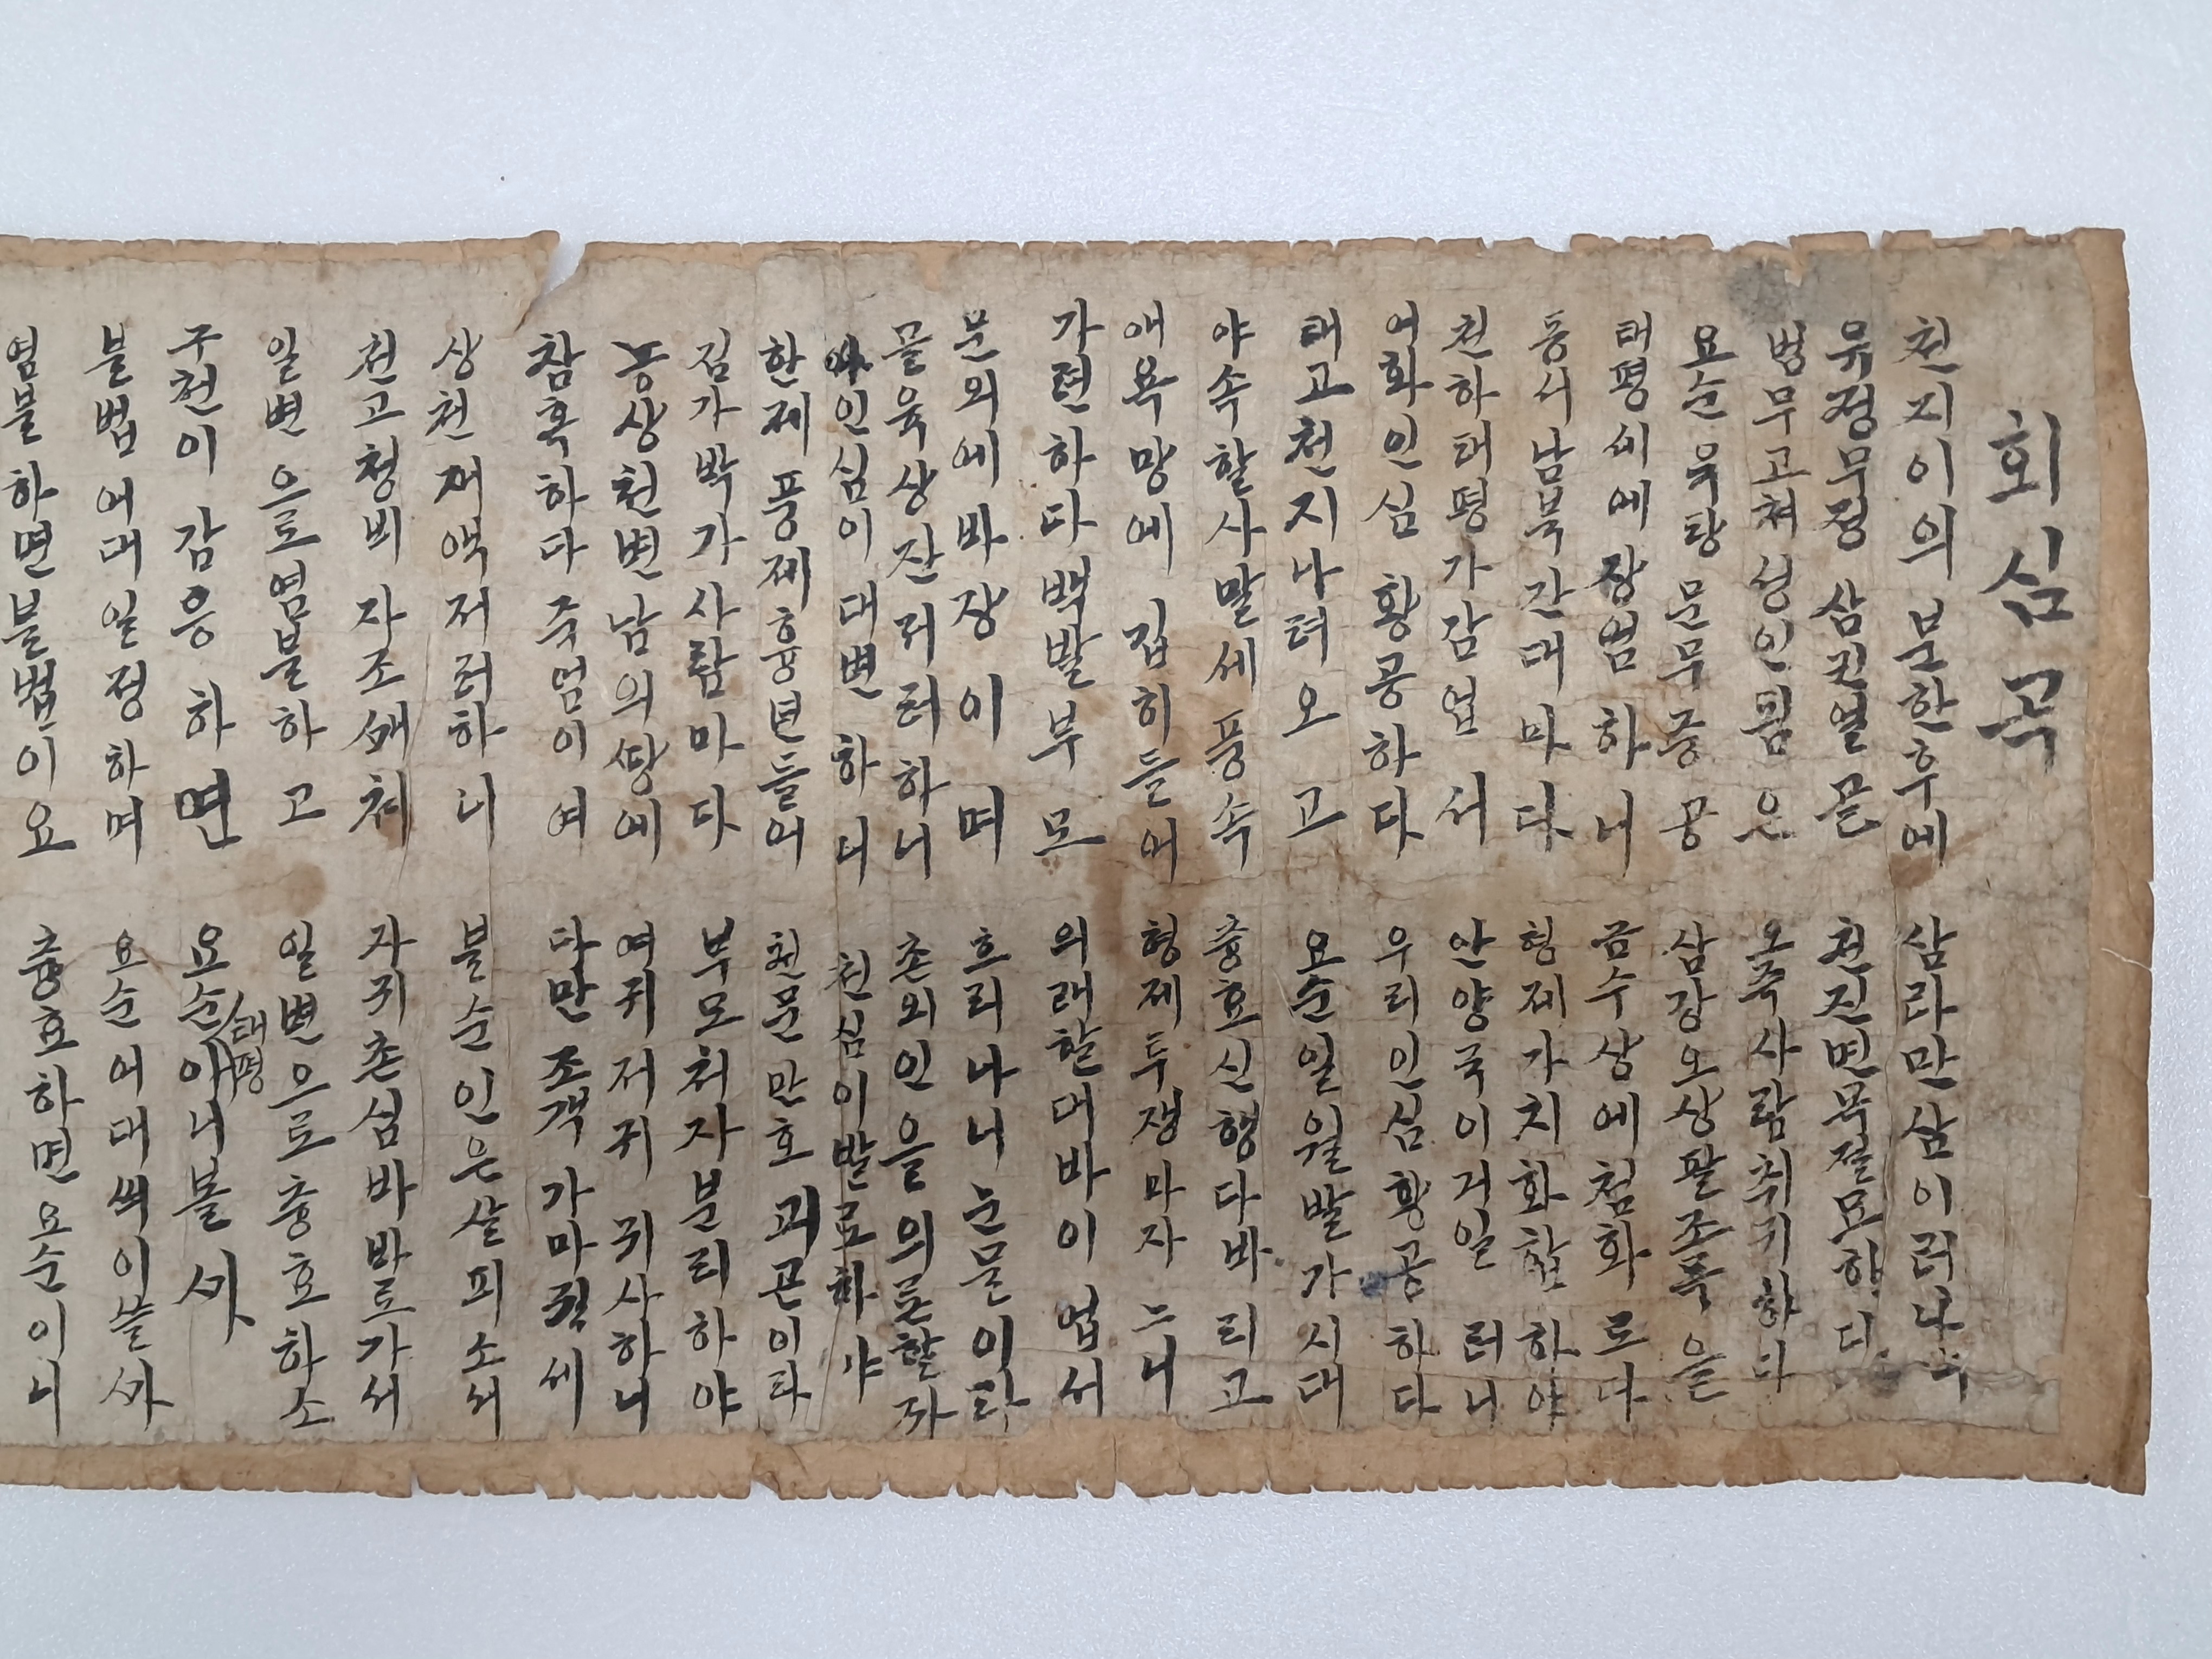 회심곡
천지이의 분한후에 삼라만상이러나니
유정무정 삼긴얼골 천진면목절묘하다
범부고쳐 성인됨은 오즉사람취귀하다
요순우탕 문무쥬공 삼강오상팔조목을
태평세에 장엄하니 금수상에 첨화로다
동서남북 간대마다 형제가치 화합하야
천하태평 가감업서 안양국이 거일러니
어화인심 황공하다 우리인심 황공하다
태고천지 나려오고 요순일월 발가시대
야속할사 말세풍속 츙효신행 다바리고
애욕망에 집히들어 형제투쟁 마자느니
가련하다 백발부모 의래할대 바이업서
문외에 바장이며 흐리나니 눈물이라
물육상잔 러러하니 촌외인을 의론할가
인심이 대변하니 천심이발로하야
한제풍제 흉년들어 천문만호 괴곤이라
김가박가 사람마다 부모처자 분리하야
농상천변 남의땅에 여귀저귀 귀사하니
참혹하다 죽엄이여 다만조객 가마귀세
상천재액 저러하니 불순인은 살피소서
천고청비 자조쌔쳐 자귀촌심 바바로가서
일변으로 염불하고 일변으로 츙효하소
구천이 감응하면 요순태평 아니볼싸
불법어대 일정하며 요순어대 씩이쓸싸
염불하면 불법이요 츙효하면 요순이니